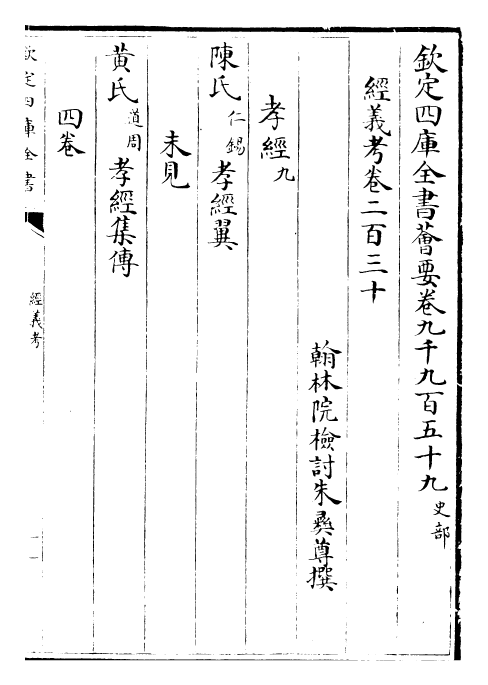 欽定四庫全書薈要卷九千九百五十九 史部
經義考卷二百三十
翰林院檢討朱彝尊撰
孝經九
陳氏仁錫孝經翼
未見
黄氏道周孝經集傳
四卷
欽定四庫全書
經義考
一